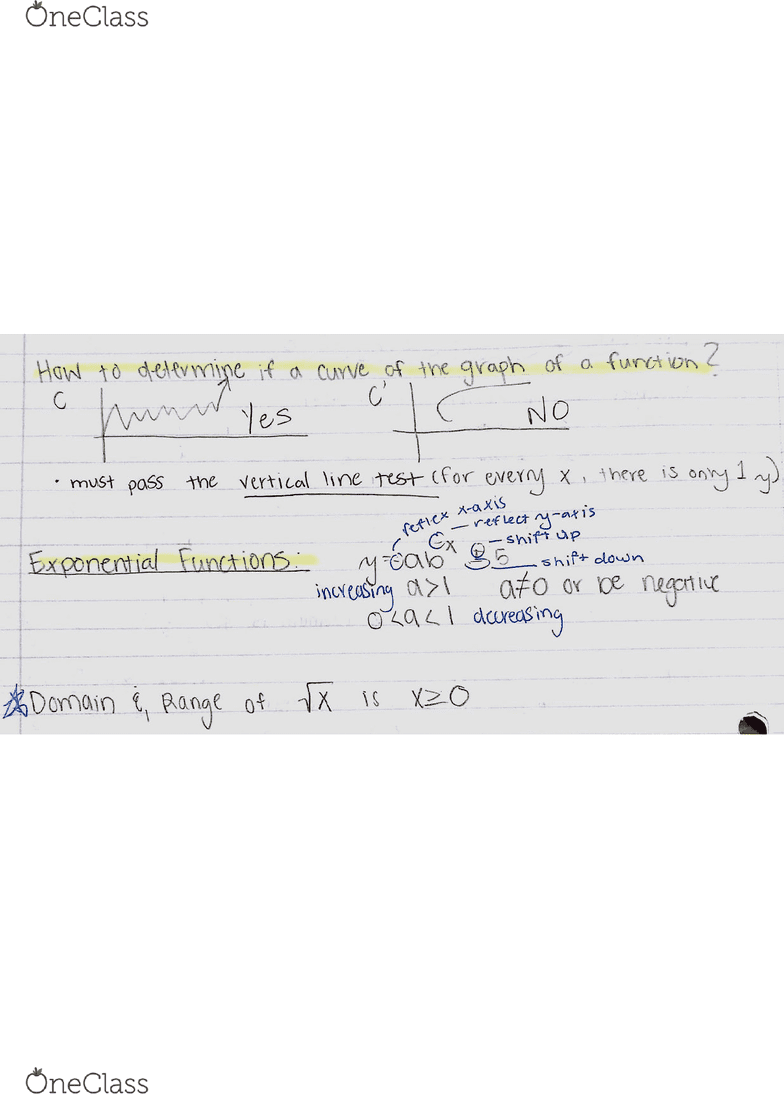 OneClass
How to determine if a curve of the graph of a function?
C Yes C' NO
• must pass the vertical line test (for every x, there is only 1 y)
reflex x-axis
reflect y-axis
shift up
Exponential Functions: y=-ab -x ± 5
shift down
increasing a>1 a≠0 or be negative
0<a<1 decreasing
Domain & Range of √x is x≥0
OneClass